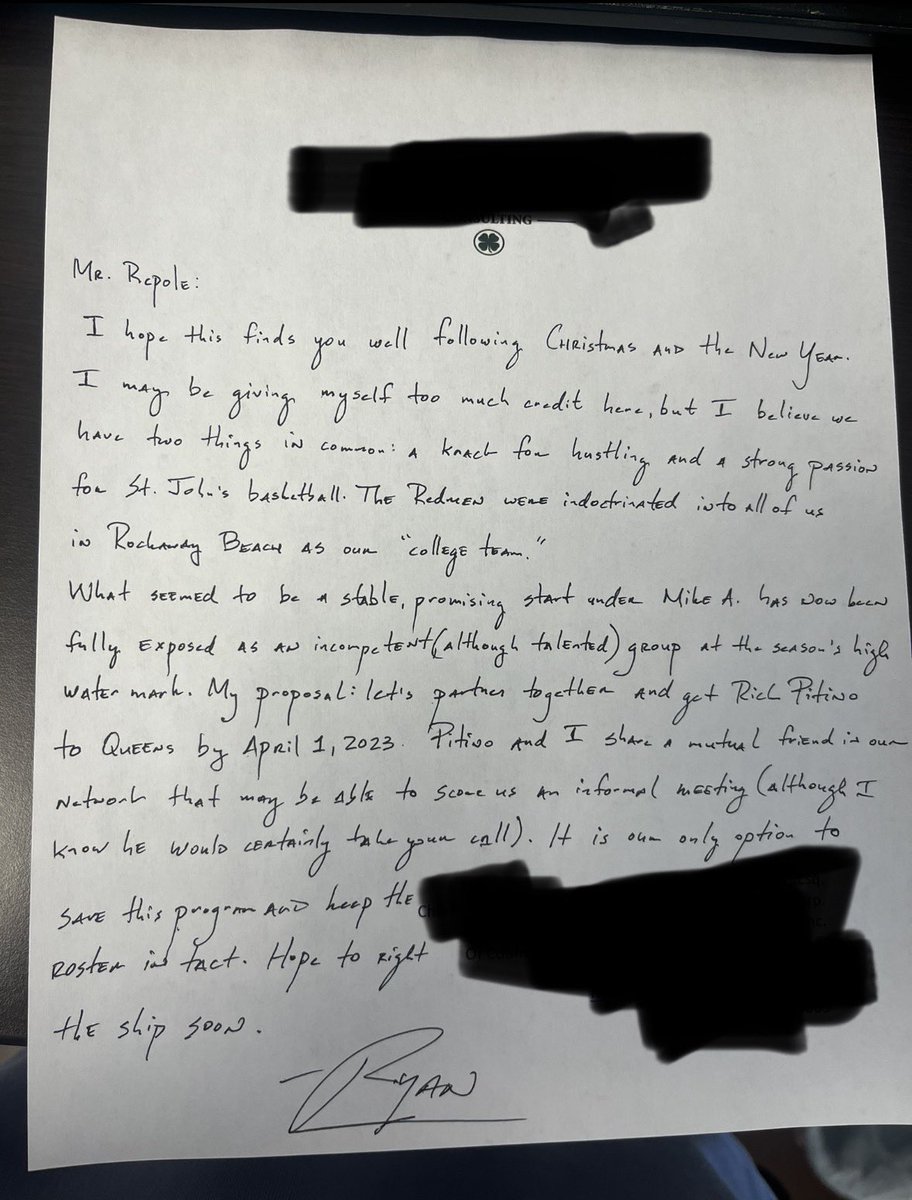 SULTING
Mr. Repole:
I hope this finds you well following Christmas and the New Year.
I may be giving myself too much credit here, but I believe we
have two things in common: a knack for hustling and a strong passion
for St. John's basketball. The Redmen were indoctrinated into all of us
in Rockaway Beach as our "college team."
What seemed to be a stable, promising start under Mike A. has now been
fully exposed as an incompetent (although talented) group at the season's high
water mark. My proposal: let's partner together and get Rich Pitino
to Queens by April 1, 2023. Pitino and I share a mutual friend in our
network that may be able to score us an informal meeting (although I
know he would certainly take your call). It is our only option to
save this program and keep the
roster in tact. Hope to right
the ship soon.
- Ryan